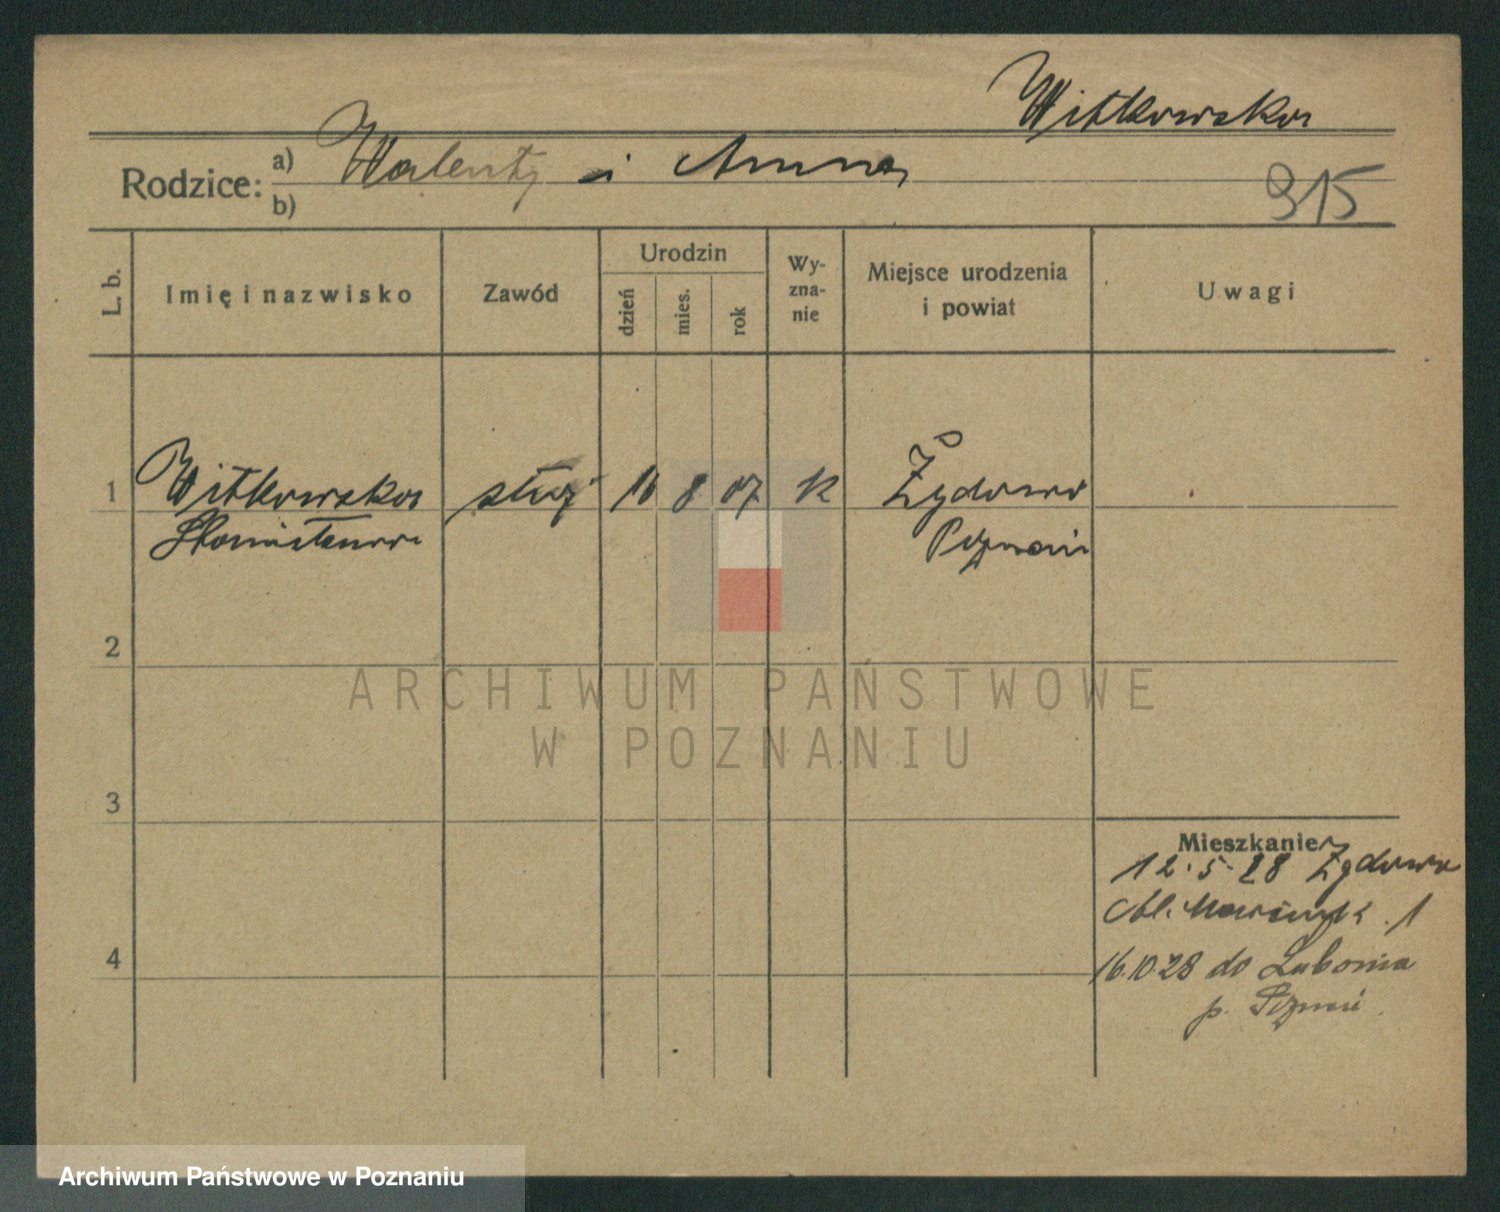 Witkowska
Rodzice: a) Walenty i Anna
b)
915
L. b.
Imię i nazwisko
Zawód
Urodzin
dzień
mies.
rok
Wy-
zna-
nie
Miejsce urodzenia
i powiat
Uwagi
1 Witkowska służ 16 8 07 k Żydowo
Stanisława Poznań
2
3
4
Mieszkanie
12.5.28 Żydowo
Al. Marcink. 1
16.10.28 do Lubonia
p. Poznań
ARCHIWUM PAŃSTWOWE
W POZNANIU
Archiwum Państwowe w Poznaniu